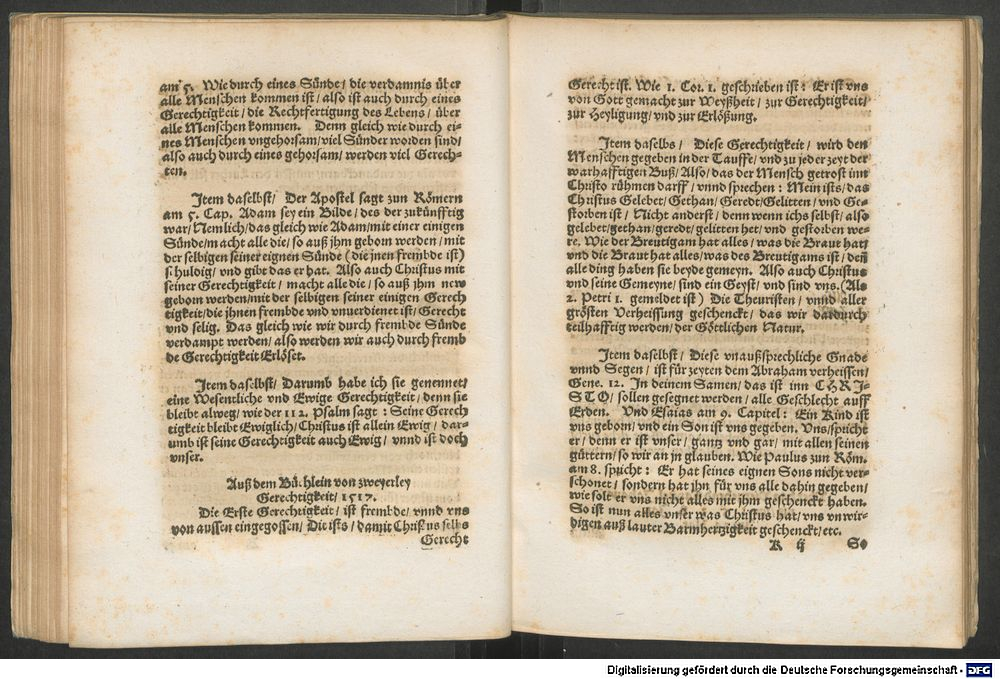 am 5. Wie durch eines Sünde/ die verdamnis über
alle Menschen kommen ist/ also ist auch durch eines
Gerechtigkeit/ die Rechtfertigung des Lebens/ über
alle Menschen kommen. Denn gleich wie durch ei-
nes Menschen vngehorsam/ viel Sünder worden sind/
also auch durch eines gehorsam/ werden viel Gerech-
ten.
Item daselbst/ Der Apostel sagt zun Römern
am 5. Cap. Adam sey ein Bilde/ des der zukünfftig
war/ Nemlich/ das gleich wie Adam/ mit einer einigen
Sünde/ macht alle die/ so auß jhm geborn werden/ mit
der selbigen seiner eignen Sünde (die jnen frembde ist)
schuldig/ vnd gibt das er hat. Also auch Christus mit
seiner Gerechtigkeit/ macht alle die/ so auß jhm new
geborn werden/ mit der selbigen seiner einigen Gerech
tigkeit/ die jhnen frembde vnd vnuerdienet ist/ Gerecht
vnd selig. Das gleich wie wir durch frembde Sünde
verdampt werden/ also werden wir auch durch fremb
de Gerechtigkeit Erlöset.
Item daselbst/ Darumb habe ich sie genennet/
eine Wesentliche vnd Ewige Gerechtigkeit/ denn sie
bleibt alweg/ wie der 112. Psalm sagt : Seine Gerech
tigkeit bleibt Ewiglich/ Christus ist allein Ewig/ dar-
umb ist seine Gerechtigkeit auch Ewig/ vnnd ist doch
vnser.
Auß dem Büchlein von zweyerley
Gerechtigkeit/ 1517.
Die Erste Gerechtigkeit/ ist frembde/ vnnd vns
von aussen eingegossen/ Die ists/ damit Christus selbs
Gerecht
Gerecht ist. Wie 1. Cor. 1. geschrieben ist : Er ist vns
von Gott gemacht zur Weyßheit/ zur Gerechtigkeit/
zur Heyligung/ vnd zur Erlößung.
Item daselbs/ Diese Gerechtigkeit/ wird den
Menschen gegeben in der Tauffe/ vnd zu jeder zeyt der
warhafftigen Buß/ Also/ das der Mensch getrost inn
Christo rühmen darff/ vnnd sprechen : Mein ists/ das
Christus Gelebet/ Gethan/ Geredt/ Gelitten/ vnd Ge-
storben ist/ Nicht anderst/ denn wenn ichs selbst/ also
gelebet/ gethan/ geredt/ gelitten het/ vnd gestorben we-
re. Wie der Breutigam hat alles/ was die Braut hat/
vnd die Braut hat alles/ was des Breutigams ist/ deñ
alle ding haben sie beyde gemeyn. Also auch Christus
vnd seine Gemeyne/ sind ein Geyst/ vnd sind vns. (Als
2. Petri 1. gemeldet ist) Die Theuristen/ vnnd aller
grösten Verheissung geschenckt/ das wir dardurch
teilhafftig werden/ der Göttlichen Natur.
Item daselbst/ Diese vnaußsprechliche Gnade
vnnd Segen/ ist für zeyten dem Abraham verheissen/
Gene. 12. In deinem Samen/ das ist inn CHRI-
STO/ sollen gesegnet werden/ alle Geschlecht auff
Erden. Vnd Esaias am 9. Capitel : Ein Kind ist
vns geborn/ vnd ein Son ist vns gegeben. Vns/ spricht
er/ denn er ist vnser/ gantz vnd gar/ mit allen seinen
güttern/ so wir an jn glauben. Wie Paulus zun Röm.
am 8. spricht : Er hat seines eignen Sons nicht ver-
schonet/ sondern hat jhn für vns alle dahin gegeben/
wie solt er vns nicht alles mit jhm geschenckt haben.
So ist nun alles vnser was Christus hat/ vns vnwir-
digen auß lauter Barmhertzigkeit geschenckt/ etc.
K ij So
Digitalisierung gefördert durch die Deutsche Forschungsgemeinschaft - DFG